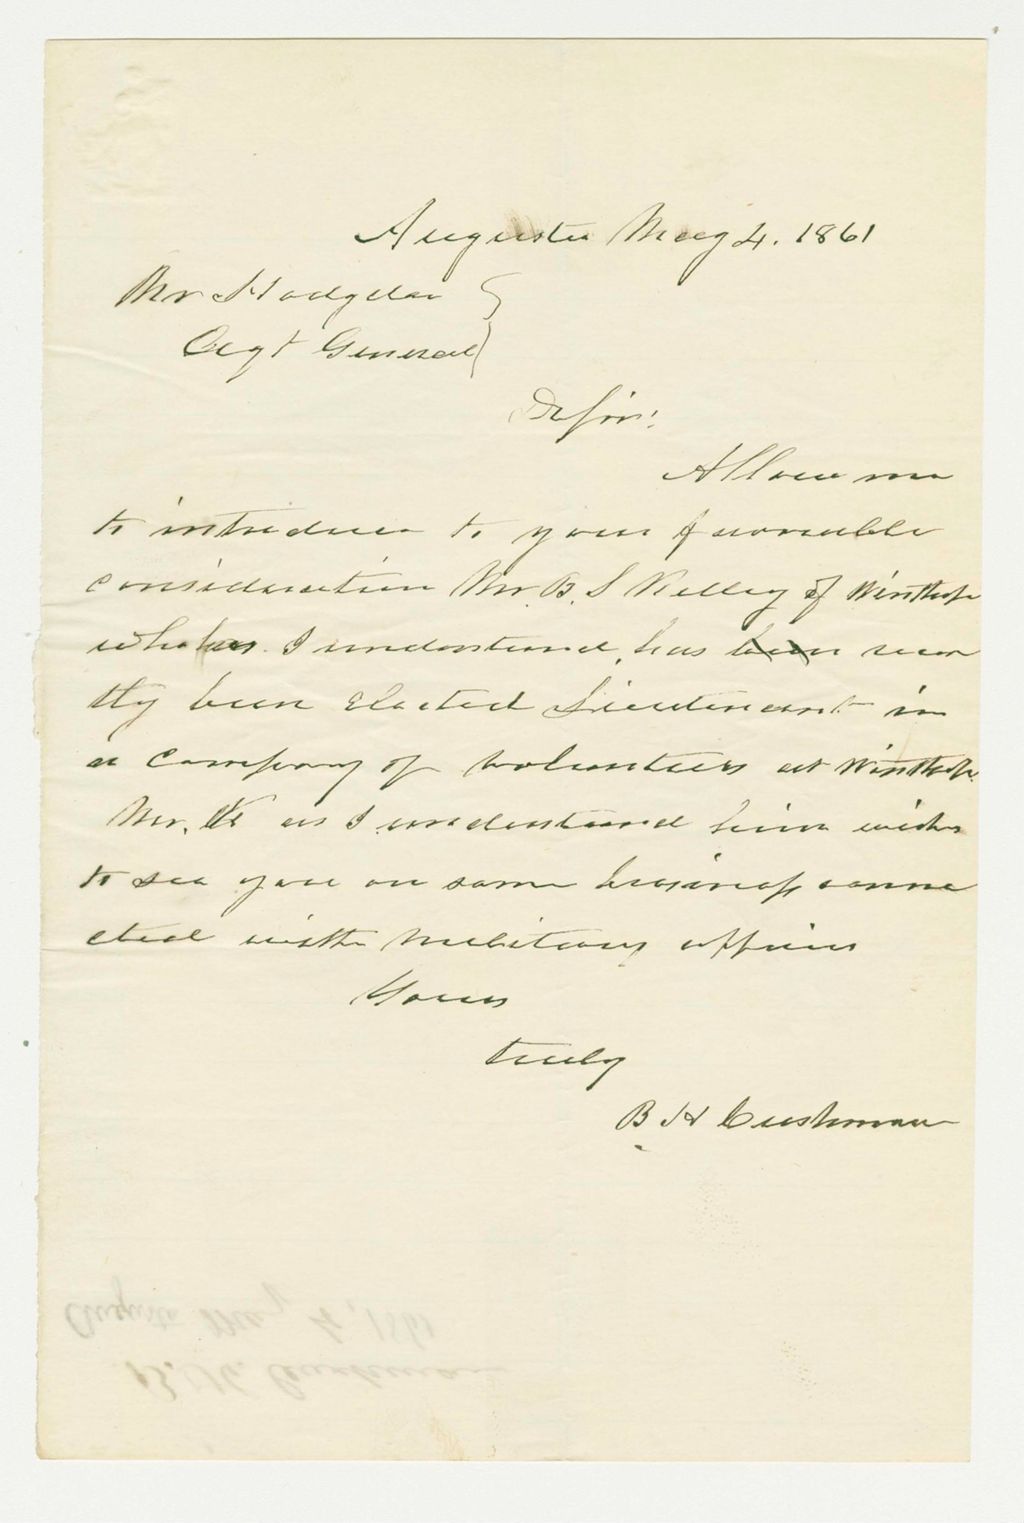 Augusta May 4. 1861
Mr Hodgdon
Agt General
Dr Sir:
Allow me
to introduce to your favorable
consideration Mr. B. S Kelley of Winthrop
who has I understand, has been recen
tly been elected Lieutenant in
a company of volunteers at Winthrop.
Mr. K as I understand him wishes
to see you on some business conne
cted with military affairs
Yours
truly
B H Cushman
Augusta May 4, 1861
B. H. Cushman